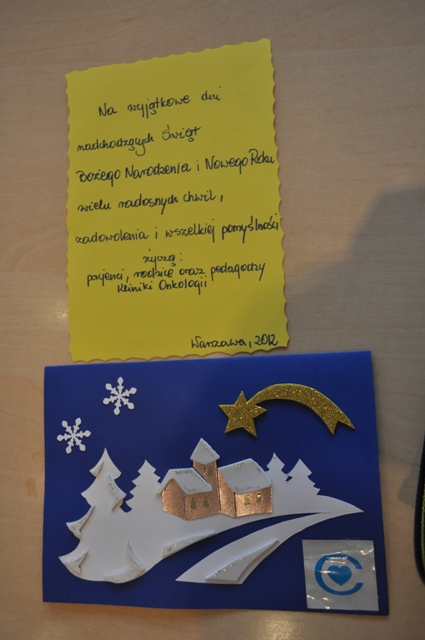 Na wyjątkowe dni
nadchodzących Świąt
Bożego Narodzenia i Nowego Roku
wielu radosnych chwil,
zadowolenia i wszelkiej pomyślności
życzą:
pacjenci, rodzice oraz pedagodzy
Kliniki Onkologii
Warszawa, 2012